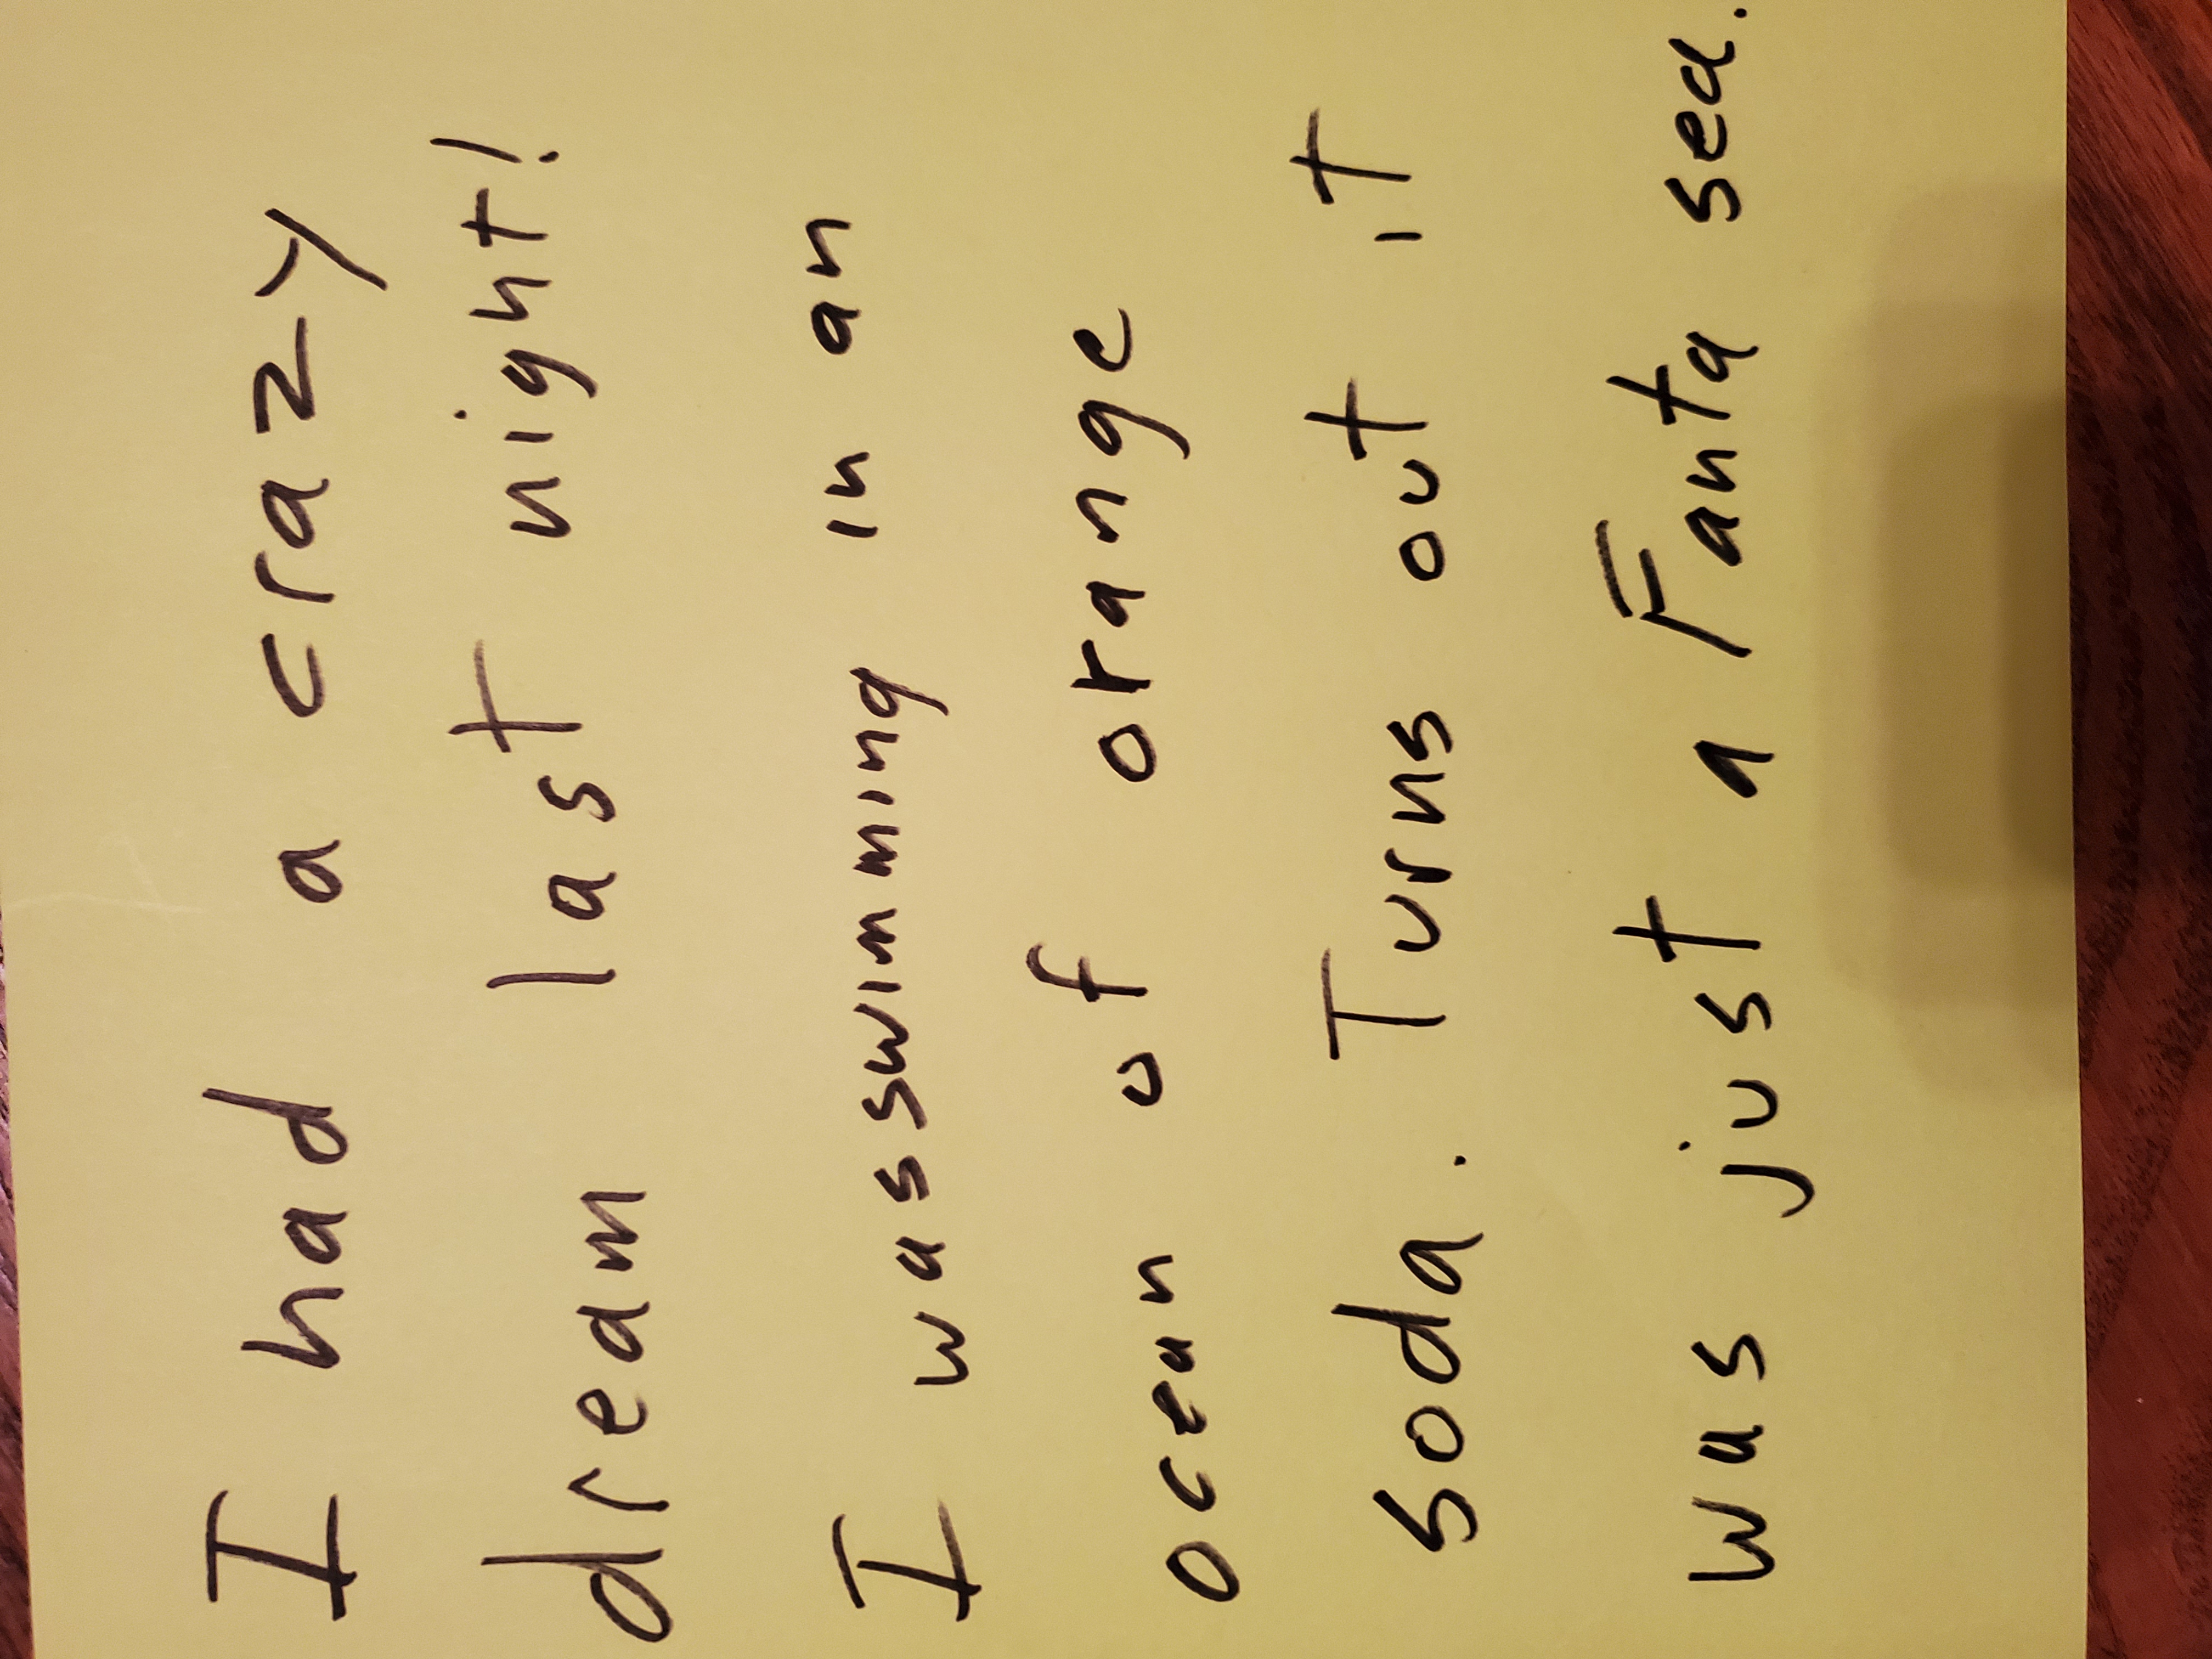 I had a crazy
dream last night!
I was swimming in an
ocean of orange
soda. Turns out it
was just a Fanta sea.